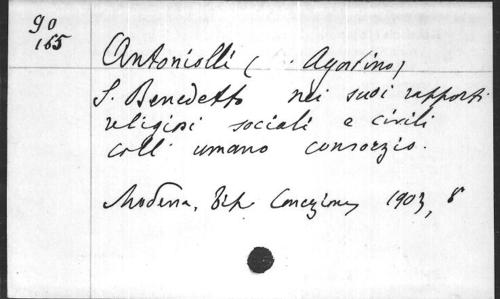 90
165
Antoniolli ( Agostino)
S. Benedetto nei suoi rapporti
religiosi sociali e civili
coll' umano consorzio.
Modena, Tip. Concezione, 1903, 8